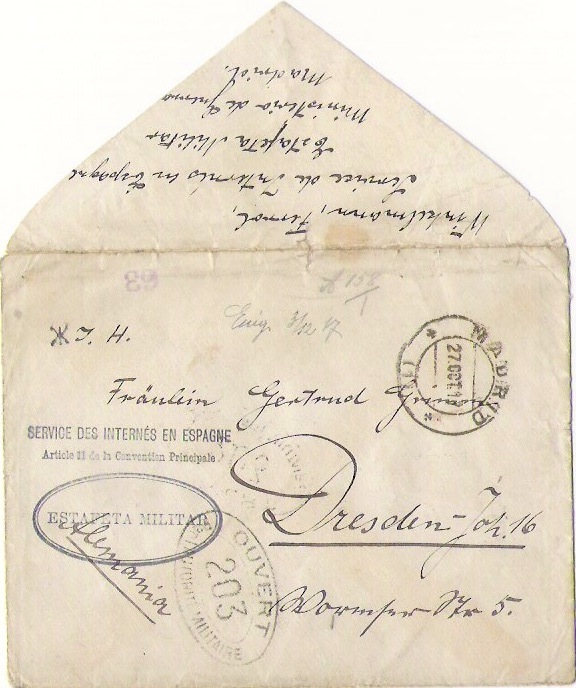 Winkelmann, Ferrol,
Service de Internés en Espagne
Estafeta Militar
Ministerio de Guerra
Madrid.
63
1/152
Eing. 3/12 17
MADRID
27 OCT. 17
J. H.
Fräulein Gertrud
SERVICE DES INTERNÉS EN ESPAGNE
Article 11 de la Convention Principale
ESTAFETA MILITAR
Alemania
Dresden-Joh. 16
OUVERT
203
MILITAIRE
Wormser Str 5.